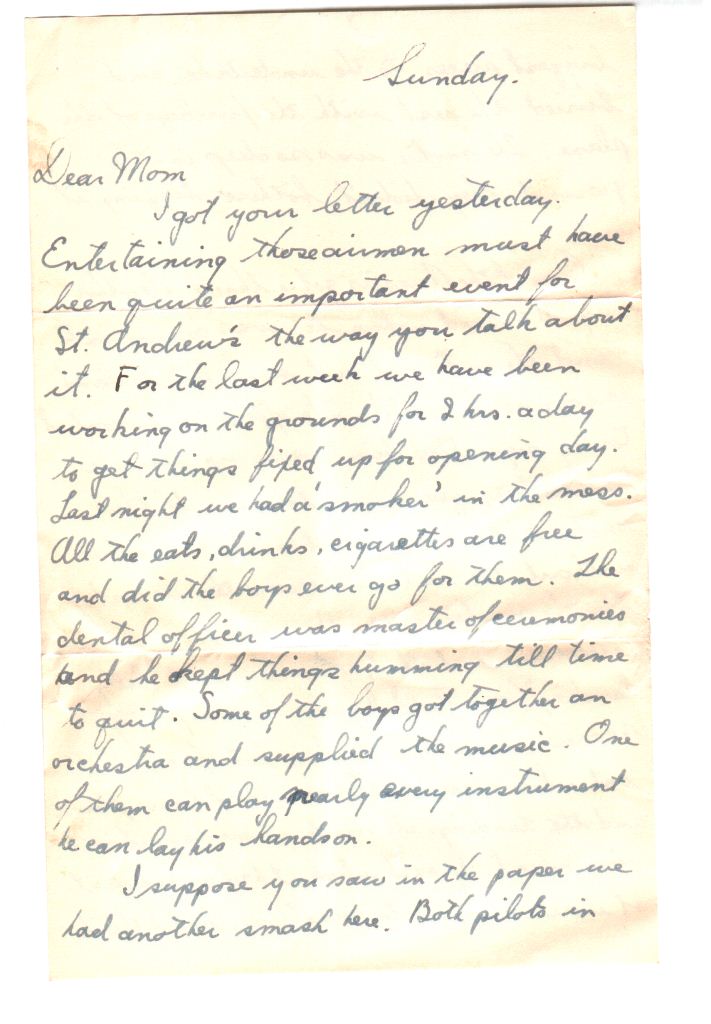 Sunday.
Dear Mom
I got your letter yesterday.
Entertaining those airmen must have
been quite an important event for
St. Andrew's the way you talk about
it. For the last week we have been
working on the grounds for 2 hrs. a day
to get things fixed up for opening day.
Last night we had a 'smoker' in the mess.
All the eats, drinks, cigarettes are free
and did the boys ever go for them. The
dental officer was master of ceremonies
and he kept things humming till time
to quit. Some of the boys got together an
orchestra and supplied the music. One
of them can play nearly every instrument
he can lay his hands on.
I suppose you saw in the paper we
had another smash here. Both pilots in